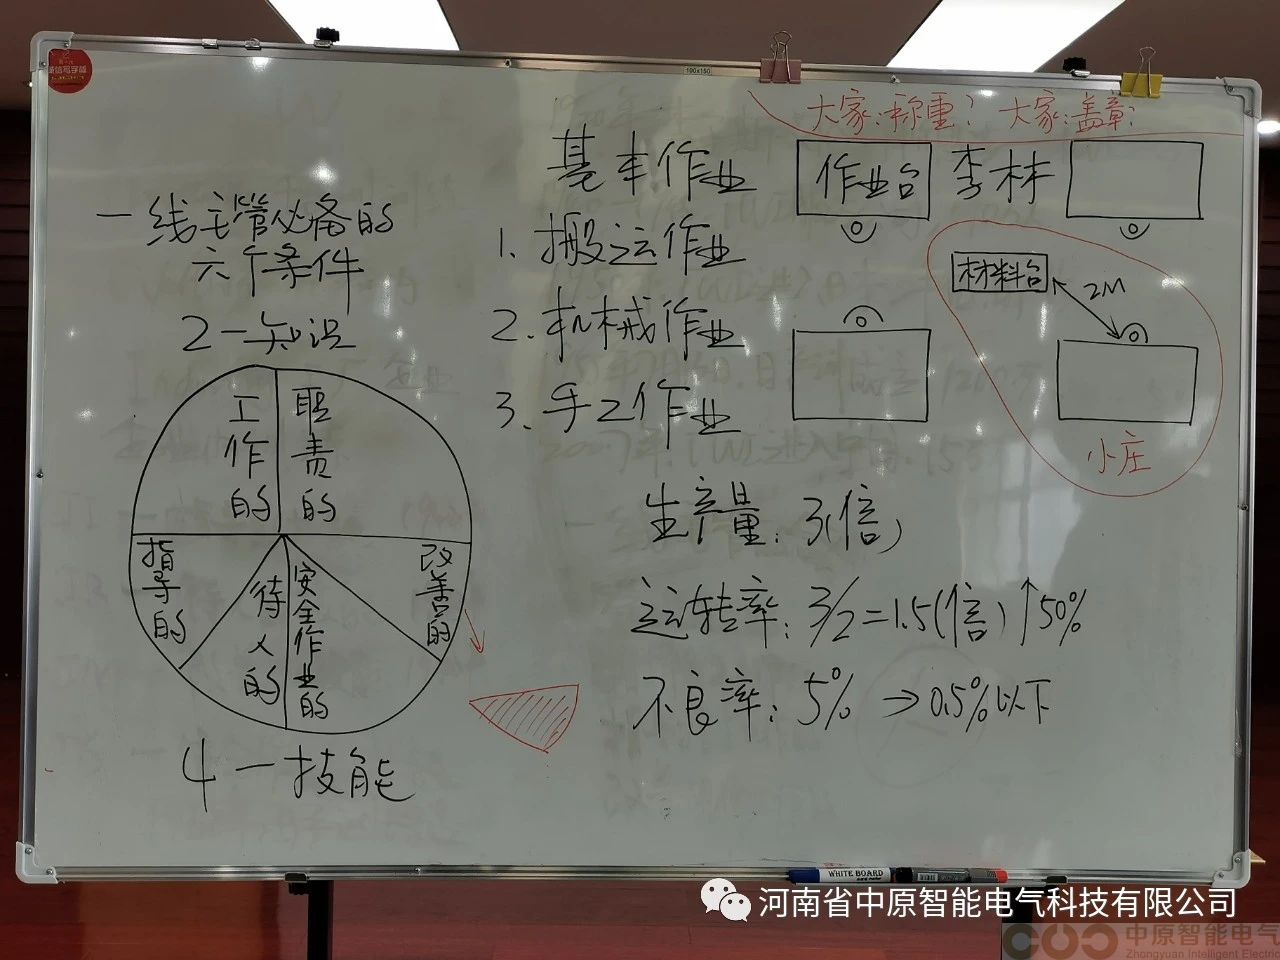 100x150
大家:称重? 大家:盖章?
一线主管必备的
六个条件
2一知识
工作的
职责的
指导的
待人的
安全作业的
改善的
4一技能
基本作业
1. 搬运作业
2. 机械作业
3. 手工作业
作业台
李林
材料台
2M
小庄
生产量: 3(倍)
运转率: 3/2=1.5(倍)↑50%
不良率: 5% →0.5%以下
WHITE BOARD
河南省中原智能电气科技有限公司
中原智能电气
Zhongyuan Intelligent Electric